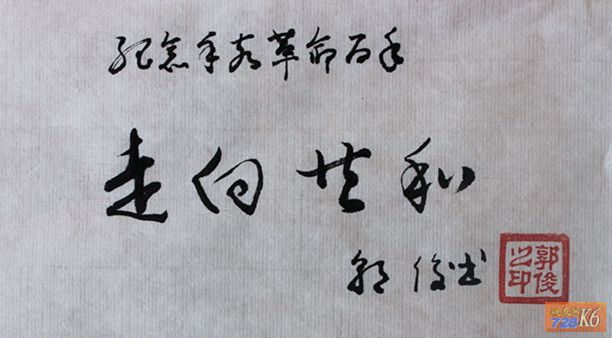 纪念辛亥革命百年
走向共和
郭俊书
郭俊之印
728K6